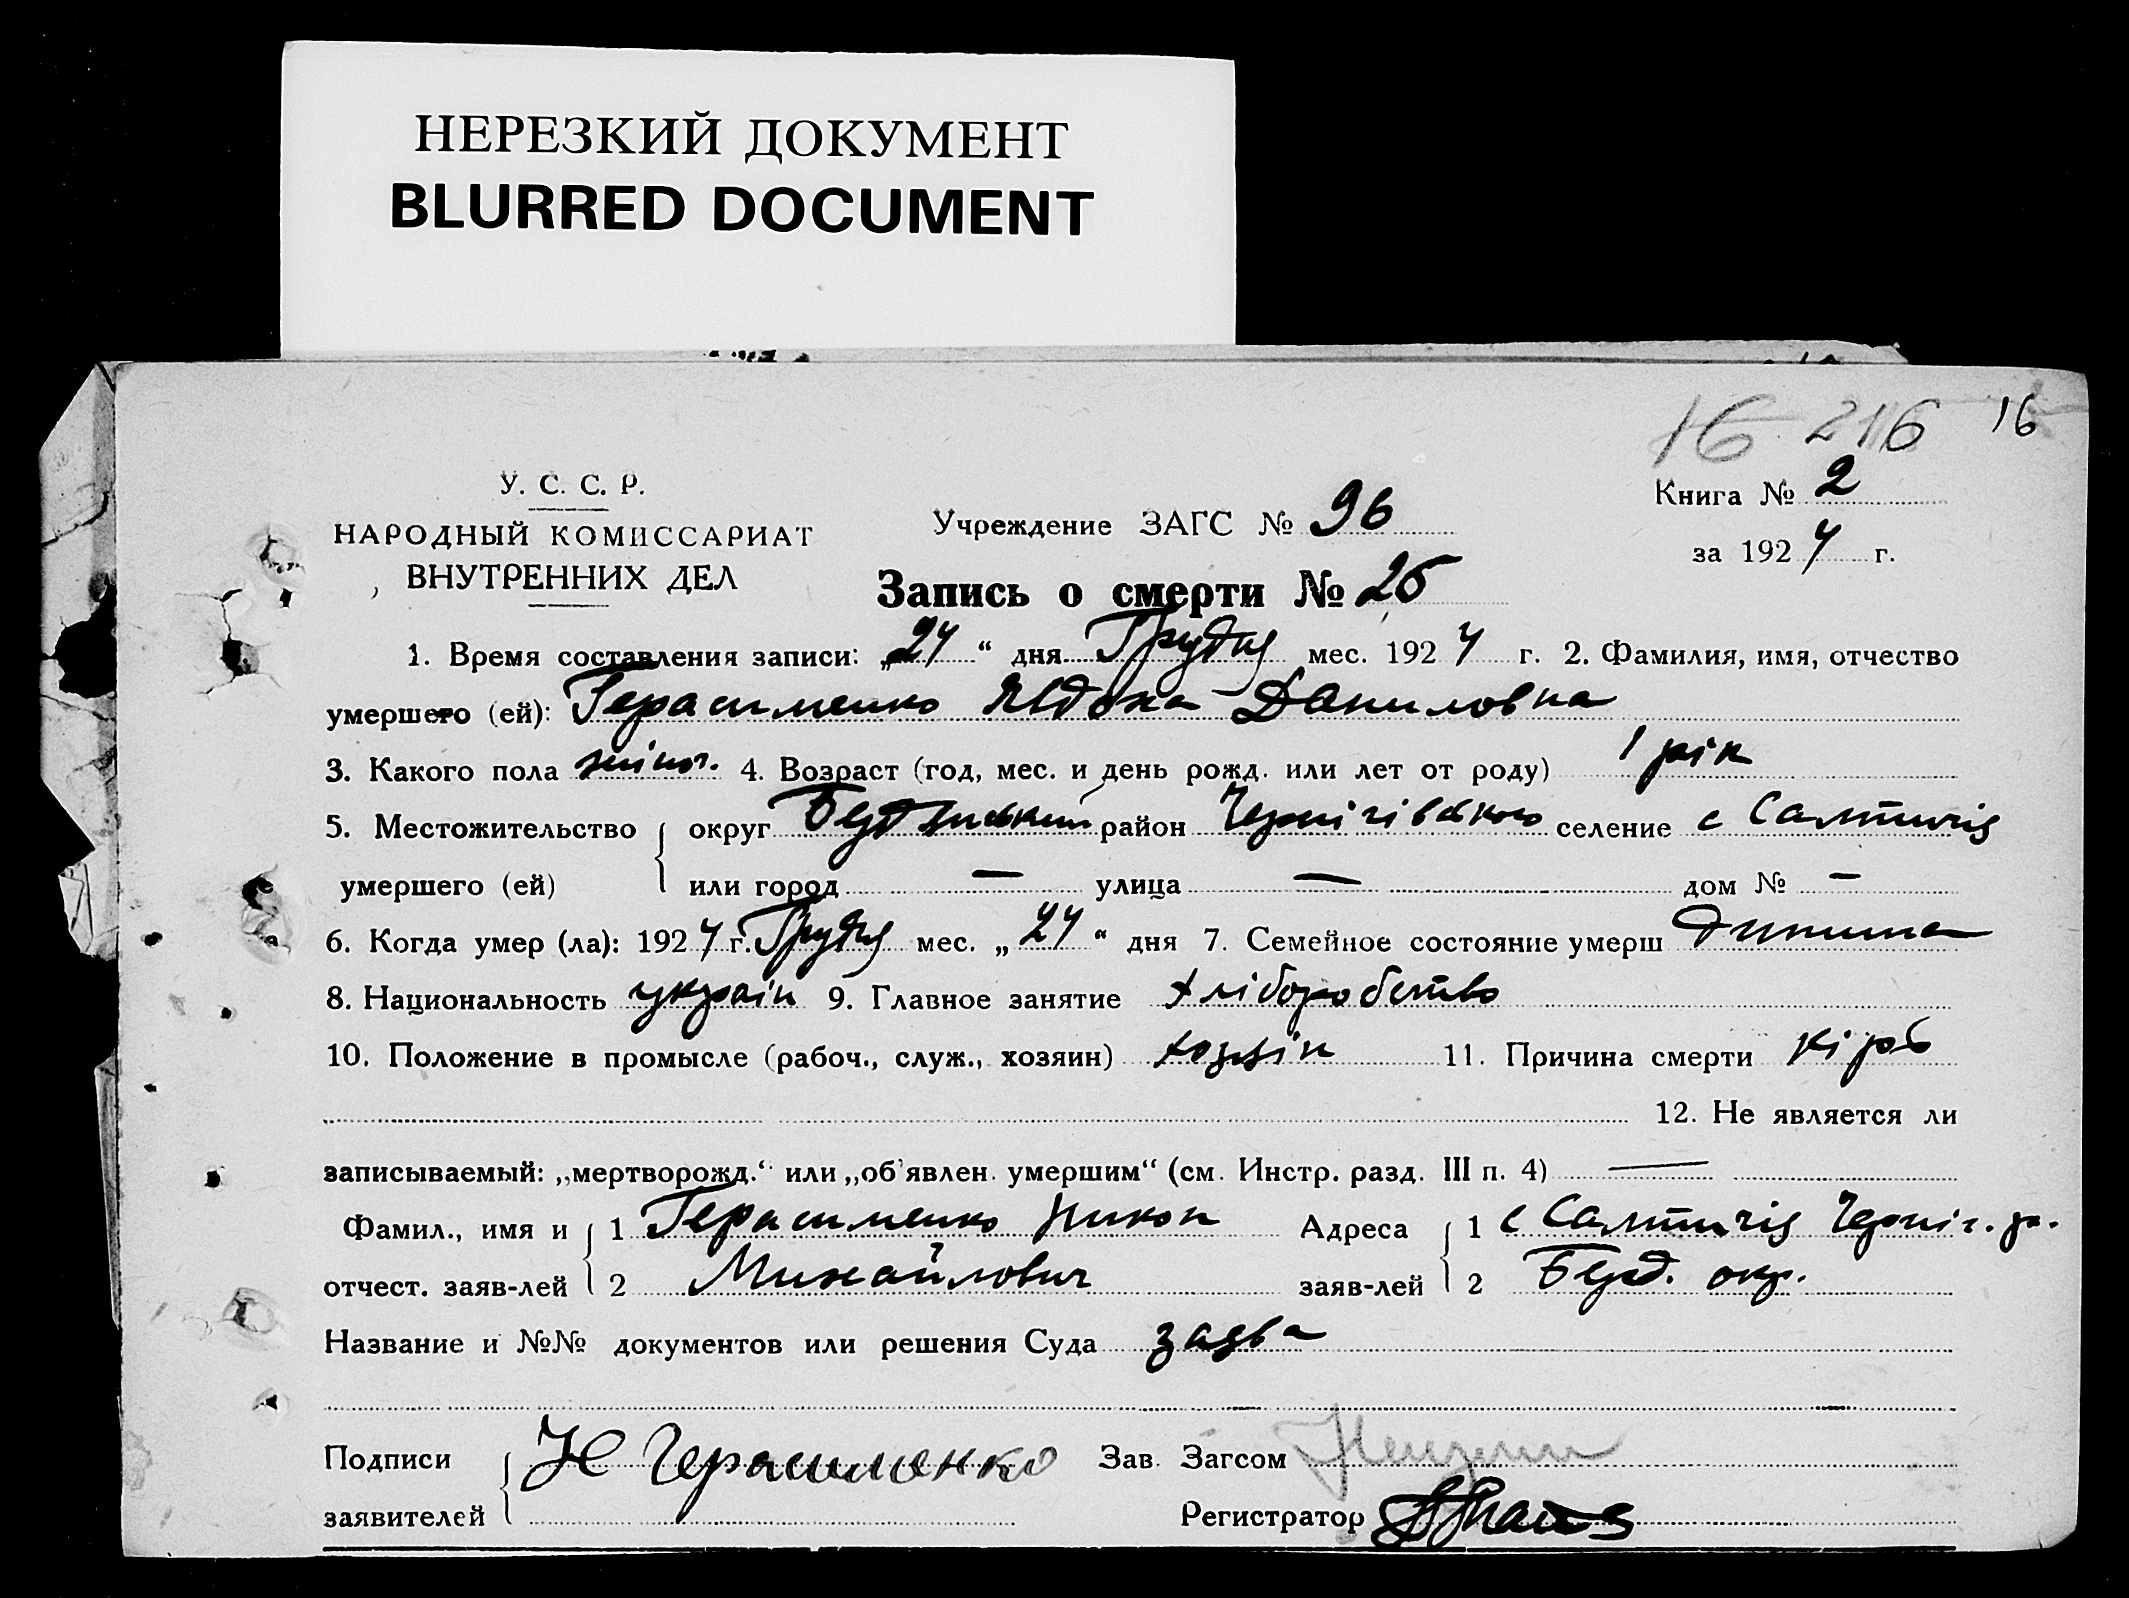 НЕРЕЗКИЙ ДОКУМЕНТ
BLURRED DOCUMENT
16 2116 16
У. С. С. Р.
НАРОДНЫЙ КОМИССАРИАТ
ВНУТРЕННИХ ДЕЛ
Учреждение ЗАГС № 96
Книга № 2
за 1924 г.
Запись о смерти № 25
1. Время составления записи: „24“ дня Грудня мес. 1924 г. 2. Фамилия, имя, отчество
умершего (ей): Герасименко Явдоха Даниловна
3. Какого пола жіноч. 4. Возраст (год, мес. и день рожд. или лет от роду) 1 рік
5. Местожительство округ Бердянський район Чернігівського селение с Салтичія
умершего (ей) или город — улица — дом № —
6. Когда умер (ла): 1924 г. Грудня мес. „24“ дня 7. Семейное состояние умерш дитина
8. Национальность україн 9. Главное занятие хліборобство
10. Положение в промысле (рабоч., служ., хозяин) хозяїн 11. Причина смерти кірь
12. Не является ли
записываемый: „мертворожд.“ или „об'явлен. умершим“ (см. Инстр. разд. III п. 4) —
Фамил., имя и 1 Герасименко Никон Адреса 1 с Салтичія Черніг. р.
отчест. заяв-лей 2 Михайлович заяв-лей 2 Берд. окр.
Название и №№ документов или решения Суда заява
Подписи Н Герасименко Зав. Загсом
заявителей Регистратор